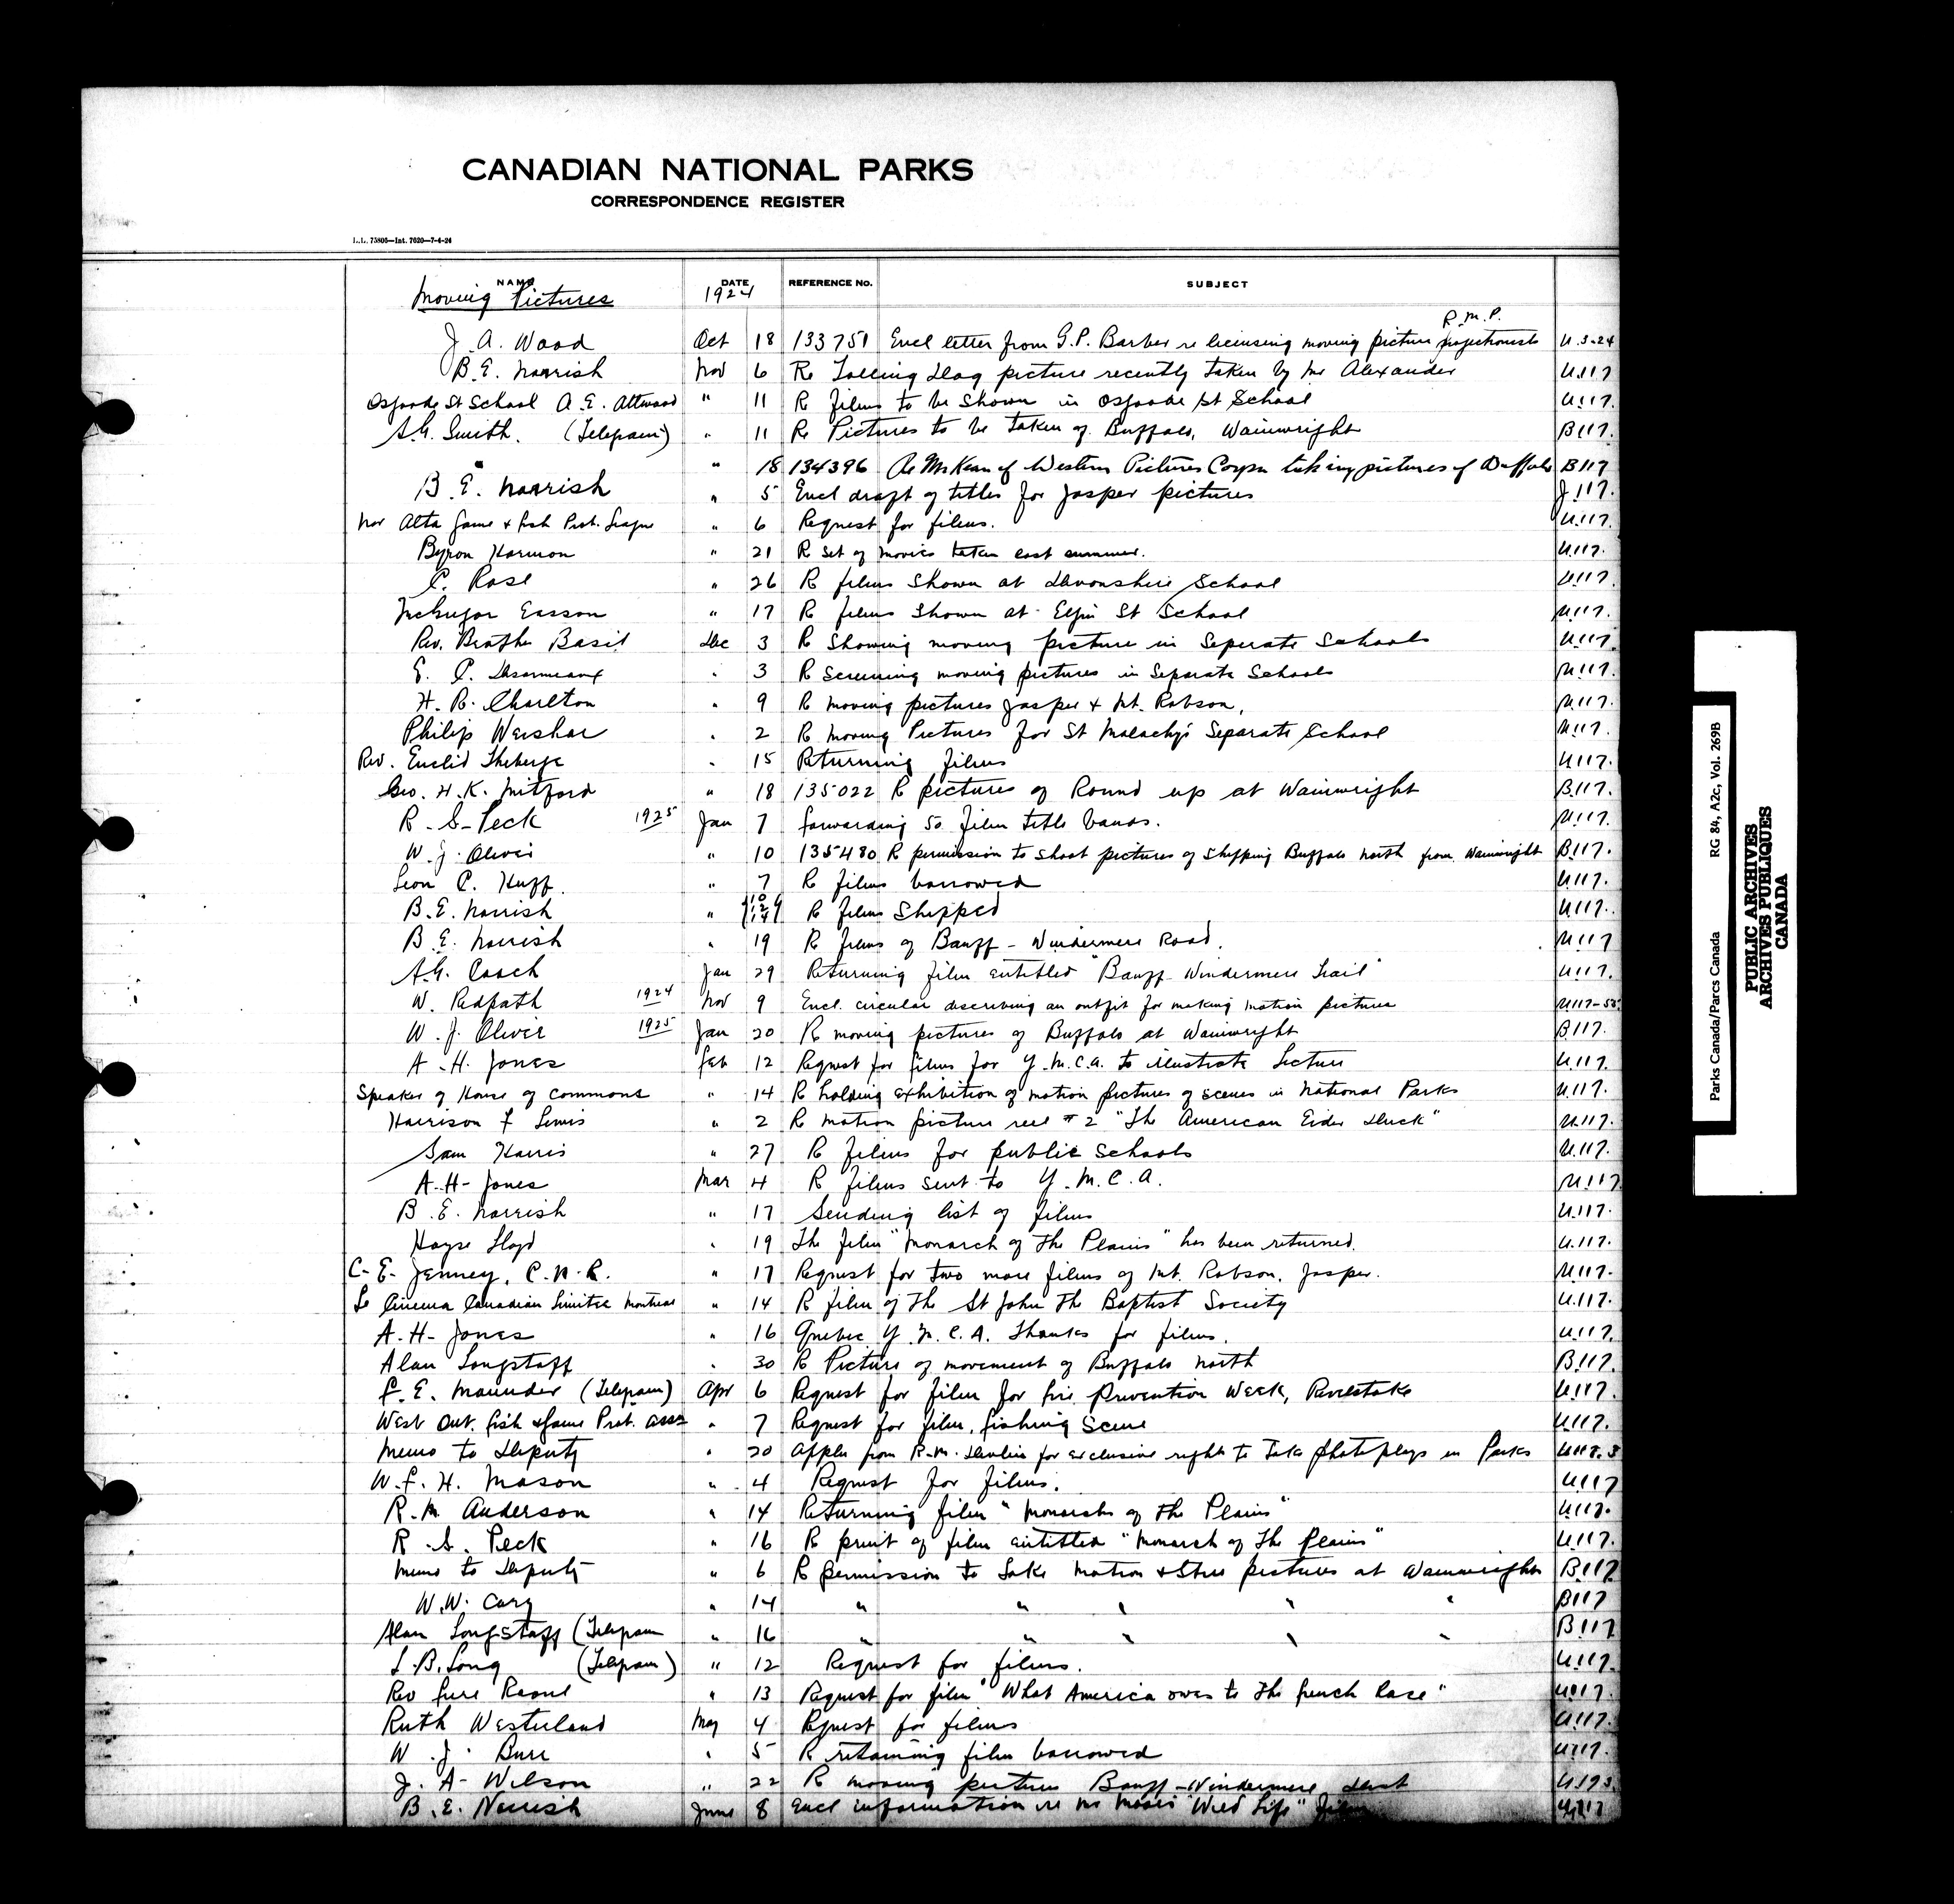 CANADIAN NATIONAL PARKS
CORRESPONDENCE REGISTER
L.L. 75805—Int. 7620—7-4-24
NAME DATE REFERENCE No. SUBJECT
Moving Pictures 1924
R.M.P.
J. A. Wood Oct 18 133751 Encl letter from G.P. Barber re licensing moving picture projectionists U.3-24
B.E. Norrish Nov 6 Re picture recently taken by Mr Alexander U.117
Osgoode St School A.E. Attwood " 11 R films to be shown in Osgoode St School U.117.
A.G. Smith. (Telegram) " 11 Re Pictures to be taken of Buffalo, Wainwright B117.
" " 18 134396 Re McKean of Western Pictures Corpn taking pictures of Buffalo B117
B.E. Norrish " 5 Encl draft of titles for Jasper pictures J.117.
Nor Alta Game & Fish Prot. League " 6 Request for films. U.117.
Byron Harmon " 21 R set of movies taken last summer. U.117.
C. Rose " 26 R films shown at Devonshire School U.117.
McGregor Easson " 17 R films shown at Elgin St School U.117.
Rev. Brother Basil Dec 3 R Showing moving picture in Seperate Schools U.117.
E. C. Desormeaux " 3 R Screening moving pictures in Separate Schools U.117.
H. R. Charlton " 9 R moving pictures Jasper & Mt. Robson. U.117.
Philip Weishar " 2 R moving Pictures for St Malachy's Separate School U.117.
Rev. Euclid Theberge " 15 Returning films U.117.
Geo. H.K. Mitford " 18 135022 R pictures of Round up at Wainwright B.117.
R.S. Peck 1925 Jan 7 forwarding 50 film title bands. U.117.
W.J. Oliver " 10 135480 R permission to shoot pictures of shipping Buffalo north from Wainwright B.117.
Leon C. Huff. " 7 R films borrowed U.117.
B.E. Norrish " 10 12 14 R films Shipped U.117.
B.E. Norrish " 19 R films of Banff - Windermere Road. U.117
A.G. Coach Jan 29 Returning film entitled "Banff Windermere Trail" U.117.
W. Redpath 1924 Nov 9 Encl. circular describing an outfit for making motion picture U.117-50.
W. J. Oliver 1925 Jan 20 R moving pictures of Buffalo at Wainwright B.117.
A.H. Jones Feb 12 Request for films for Y.M.C.A. to illustrate lecture U.117.
Speaker of House of Commons " 14 R holding exhibition of motion pictures of scenes in National Parks U.117.
Harrison F Lewis " 2 R motion picture reel #2 "The American Eider Duck" U.117.
Sam Harris " 27 R films for public schools U.117.
A.H. Jones Mar 4 R films sent to Y.M.C.A. U.117
B.E. Norrish " 17 Sending list of films U.117.
Hoyes Lloyd " 19 The film "Monarch of the Plains" has been returned. U.117.
C.E. Jenney, C.N.R. " 17 Request for two more films of Mt. Robson, Jasper. U.117.
Le Cinema Canadian Limitee Montreal " 14 R film of the St John the Baptist Society U.117.
A.H. Jones " 16 Quebec Y.M.C.A. Thanks for films. U.117.
Alan Longstaff " 30 R Picture of movement of Buffalo North B.117.
F.E. Maunder (Telegram) Apr 6 Request for film for fire Prevention Week, Revelstoke U.117.
West Ont. Fish & Game Prot. Assn " 7 Request for film, fishing scene U.117.
Memo to Deputy " 20 Applen from R.M. Devlin for exclusive right to take photoplays in Parks U117.3
W.F.H. Mason " 4 Request for films. U.117
R.M. Anderson " 14 Returning film "Monarchs of the Plains" U.117.
R.S. Peck " 16 R print of film entitled "Monarch of the Plains" U.117.
Memo to Deputy " 6 R permission to take motion & still pictures at Wainwright B.117
W.W. Cory " 14 " " " " " B117
Alan Longstaff (Telegram " 16 " " " " " B117
L.B. Long (Telegram) " 12 Request for films. U.117.
Rev Raoul " 13 Request for film "What America owes to the French Race" U.117.
Ruth Westerland May 4 Request for films U.117.
W.J. Burr " 5 R retaining film borrowed U.117.
J.A. Wilson " 22 R moving picture Banff-Windermere U.193.
B.E. Norrish June 8 Encl information re Mr "Wild Life" film U.117
Parks Canada/Parcs Canada RG 84, A2c, Vol. 269B
PUBLIC ARCHIVES
ARCHIVES PUBLIQUES
CANADA